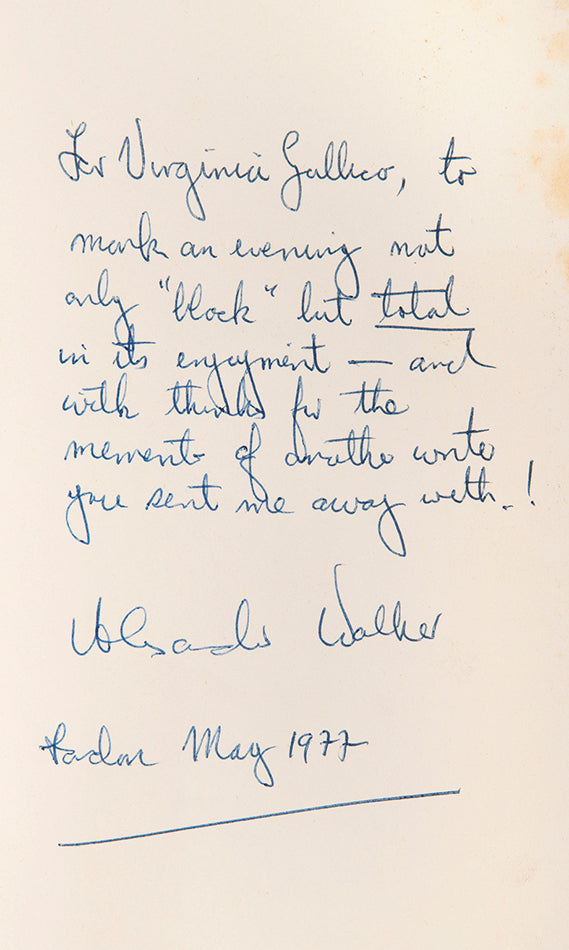 For Virginia Gallico, to
mark an evening not
only "block" but total
in its enjoyment — and
with thanks for the
memento of another writer
you sent me away with.!
Alexander Walker
London May 1977